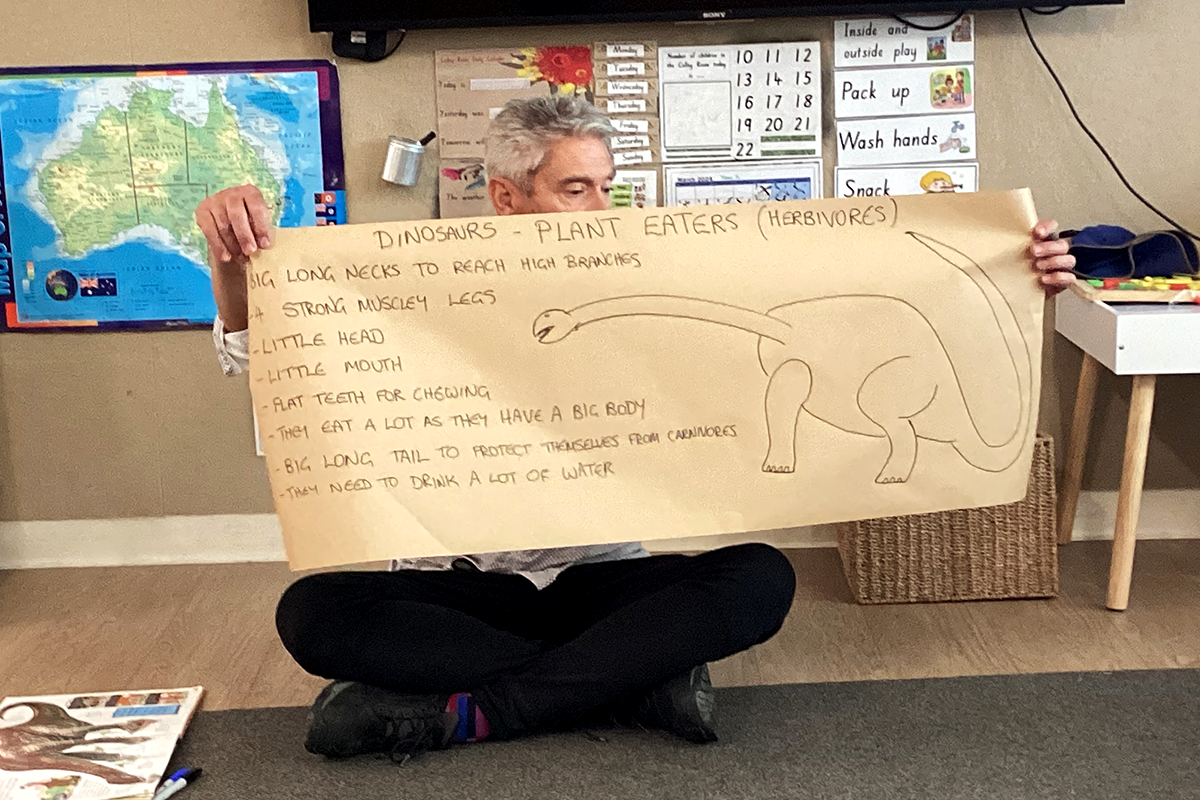 SONY
Inside and
outside play
Pack up
Wash hands
Snack
Monday
Tuesday
Wednesday
Thursday
Friday
Saturday
Sunday
Number of children in
the Colley Room today
is
10 11 12
13 14 15
16 17 18
19 20 21
22
Today is
Yesterday was
Tomorrow will
The weather
March 2024
DINOSAURS - PLANT EATERS (HERBIVORES)
BIG LONG NECKS TO REACH HIGH BRANCHES
-4 STRONG MUSCLEY LEGS
-LITTLE HEAD
-LITTLE MOUTH
-FLAT TEETH FOR CHEWING
-THEY EAT A LOT AS THEY HAVE A BIG BODY
-BIG LONG TAIL TO PROTECT THEMSELVES FROM CARNIVORES
-THEY NEED TO DRINK A LOT OF WATER